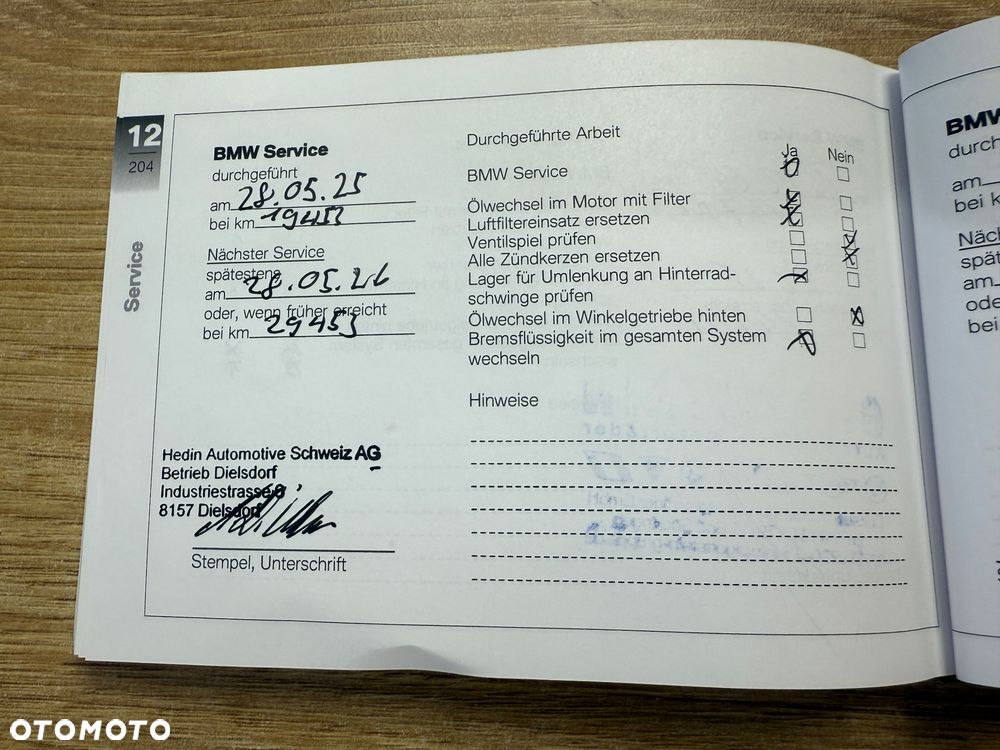 12
204
Service
BMW Service
durchgeführt
am 28.05.25
bei km 19453
Nächster Service
spätestens
am 28.05.26
oder, wenn früher erreicht
bei km 29453
Hedin Automotive Schweiz AG
Betrieb Dielsdorf
Industriestrasse
8157 Dielsdorf
Stempel, Unterschrift
Durchgeführte Arbeit
Ja Nein
BMW Service
Ölwechsel im Motor mit Filter
Luftfiltereinsatz ersetzen
Ventilspiel prüfen
Alle Zündkerzen ersetzen
Lager für Umlenkung an Hinterrad-
schwinge prüfen
Ölwechsel im Winkelgetriebe hinten
Bremsflüssigkeit im gesamten System
wechseln
Hinweise
BMW
durch
am
bei k
Näch
spät
am
ode
bei
OTOMOTO